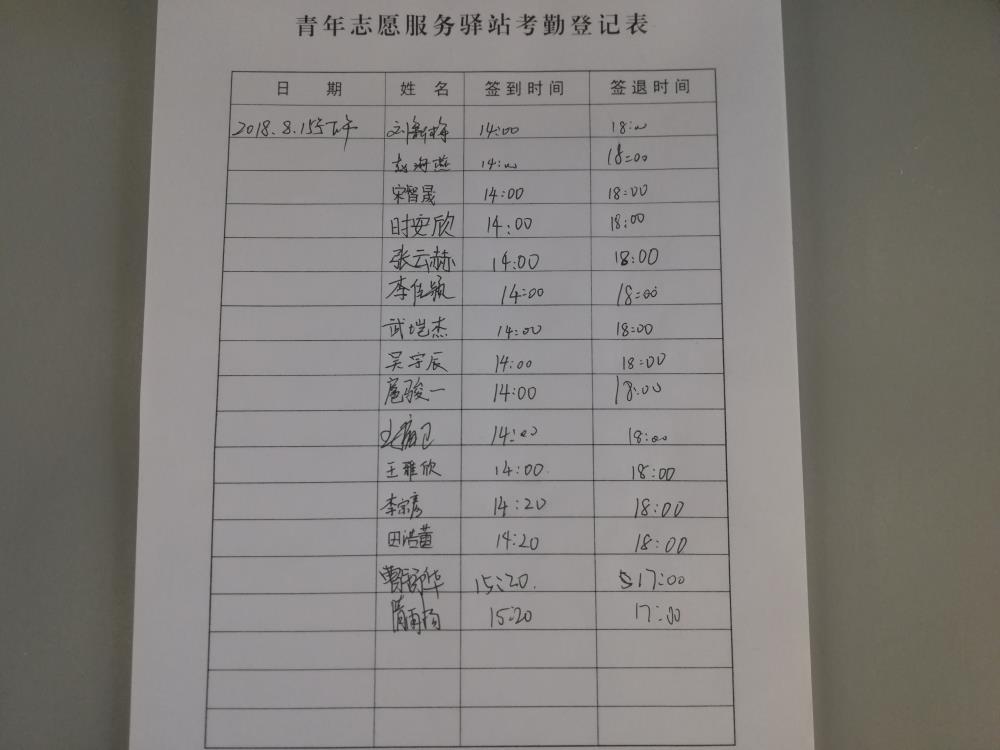 青年志愿服务驿站考勤登记表
日 期 姓 名 签到时间 签退时间
2018.8.15号下午 刘新梅 14:00 18:00
赵海燕 14:00 18:00
宋智晟 14:00 18:00
时安欣 14:00 18:00
张云赫 14:00 18:00
李佳颖 14:00 18:00
武垲杰 14:00 18:00
吴宇辰 14:00 18:00
扈骏一 14:00 18:00
14:00 18:00
王雅欣 14:00 18:00
李宗彦 14:20 18:00
田浩萱 14:20 18:00
15:20. 17:00
15:20 17:00